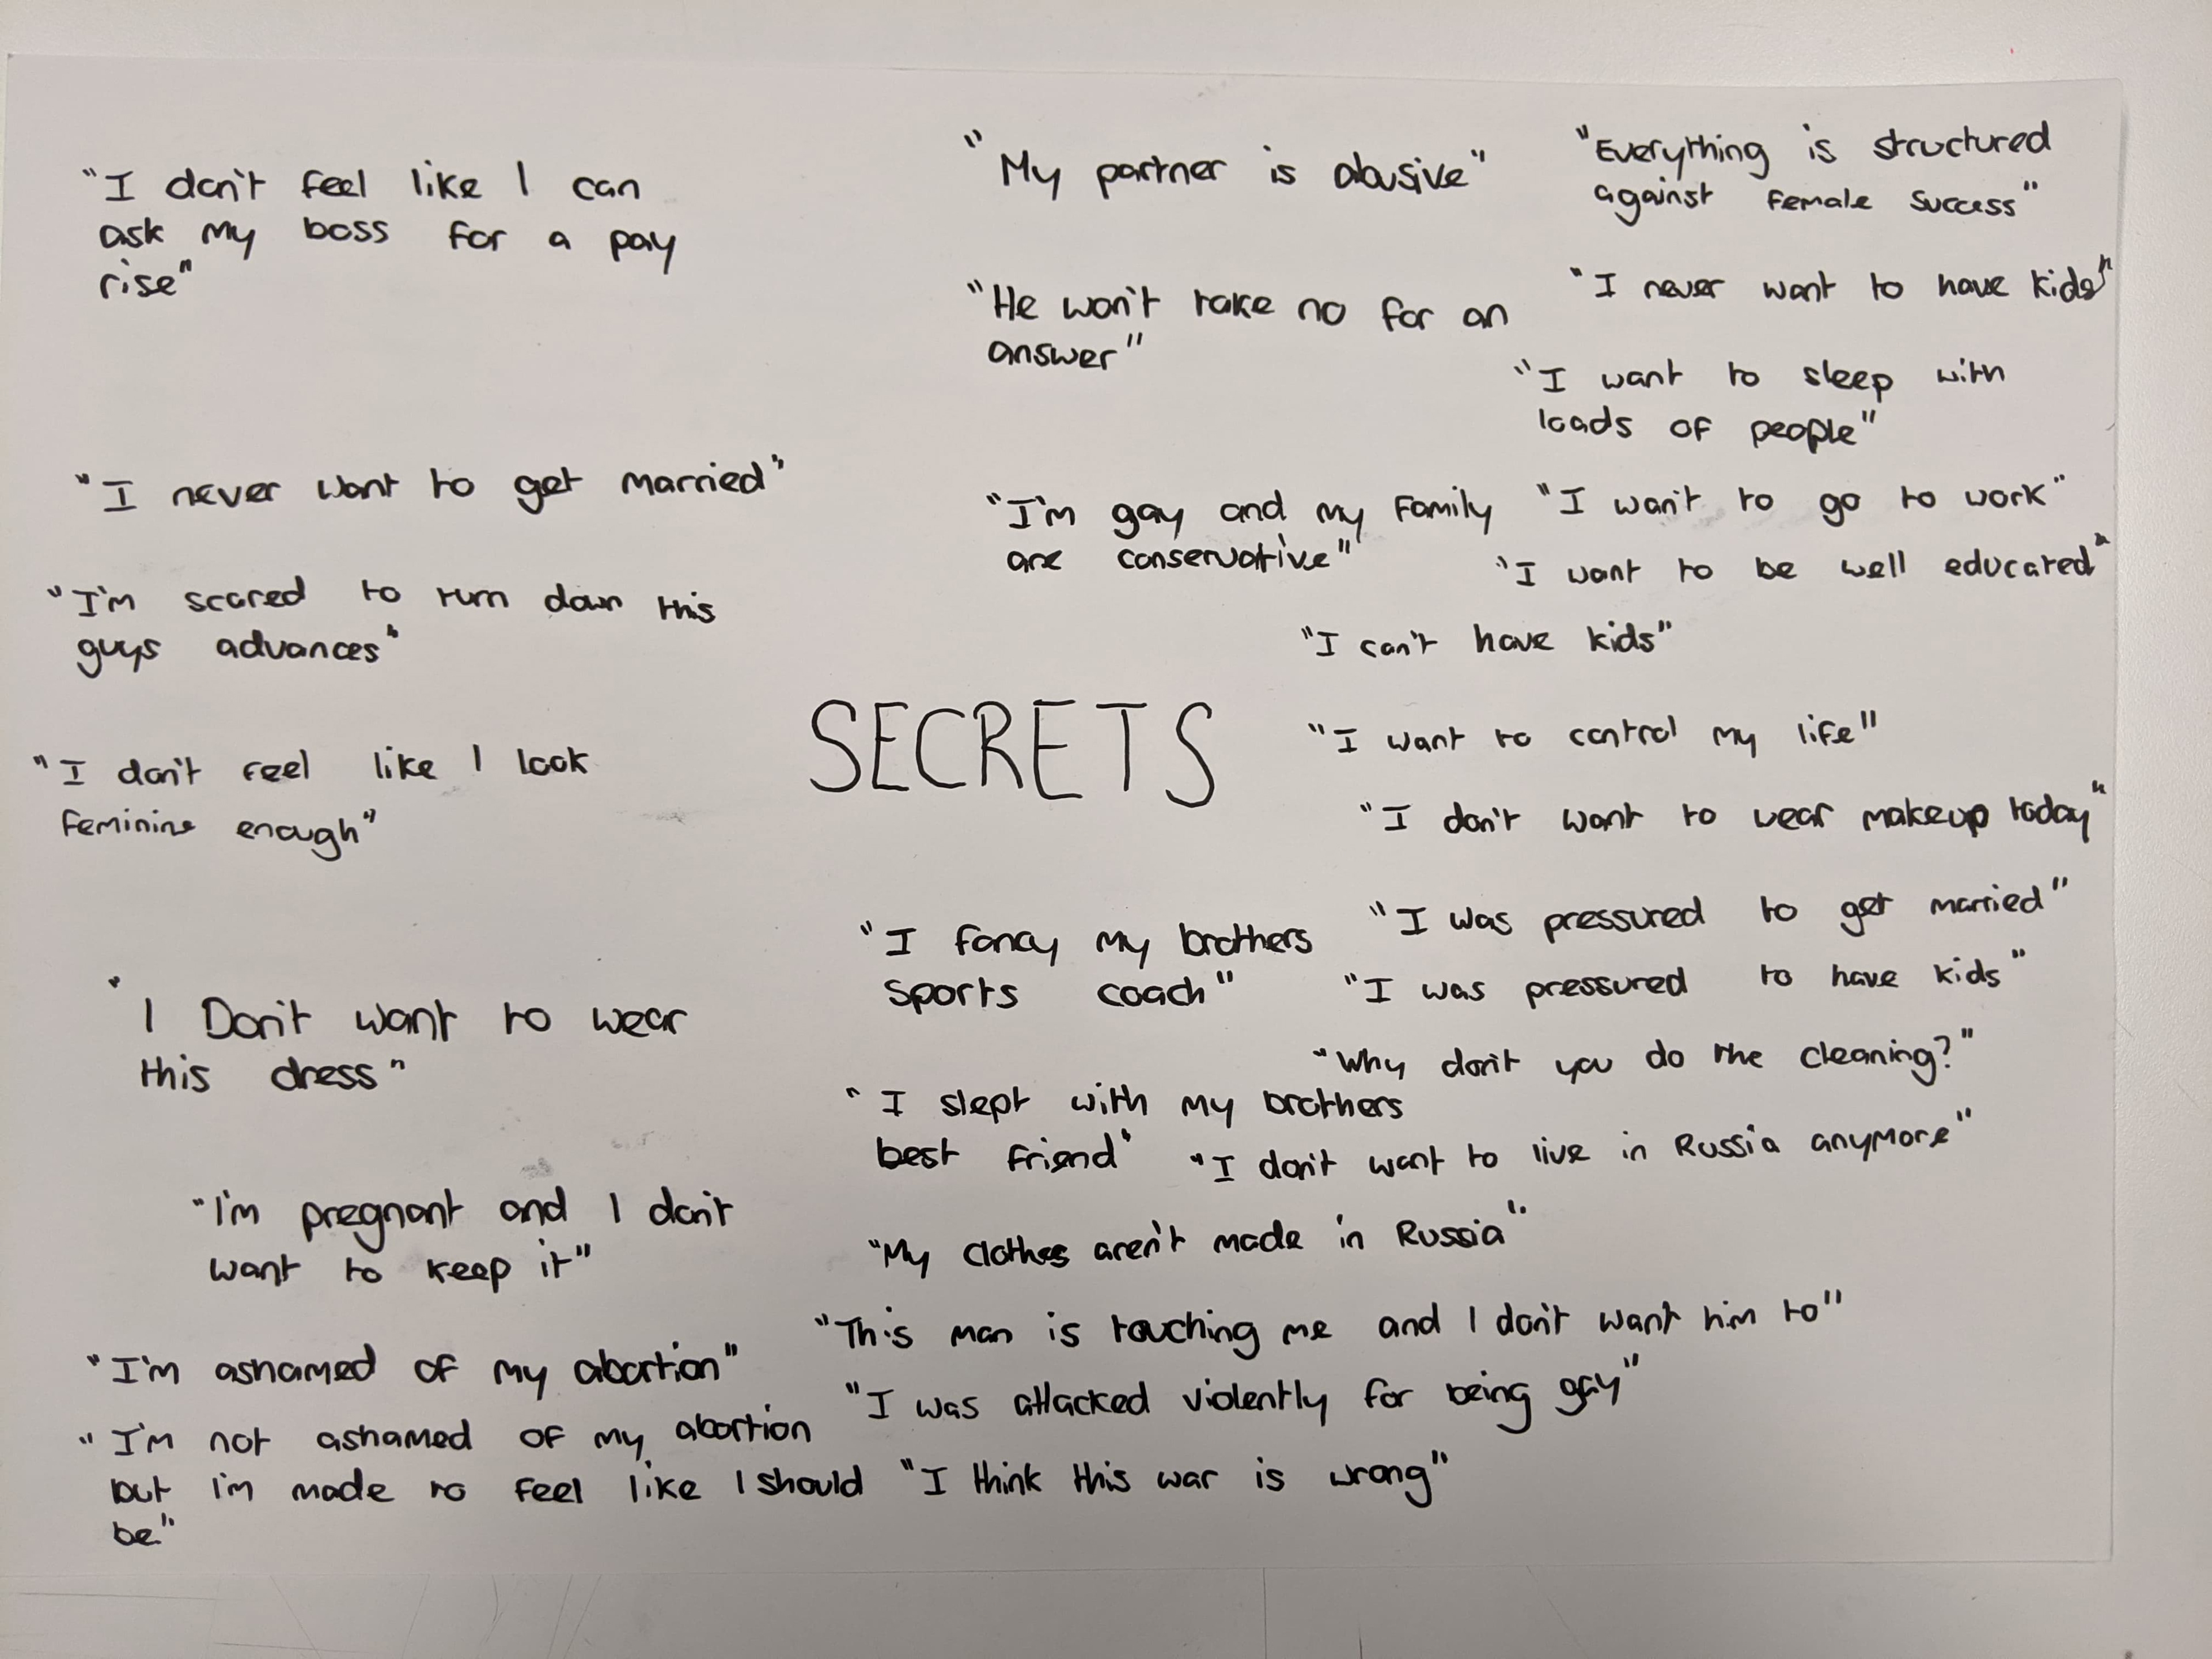 "I don't feel like I can
ask my boss for a pay
rise"
"I never want to get married"
"I'm scared to turn down this
guys advances"
"I don't feel like I look
feminine enough"
"I Don't want to wear
this dress"
"I'm pregnant and I don't
want to keep it"
"I'm ashamed of my abortion"
"I'm not ashamed of my abortion
but i'm made to feel like I should
be."
"My partner is abusive"
"He won't take no for an
answer"
"I'm gay and my family
are conservative"
SECRETS
"I fancy my brothers
sports coach"
"I slept with my brothers
best friend"
"Everything is structured
against female success"
"I never want to have kids"
"I want to sleep with
loads of people"
"I wan't to go to work"
"I want to be well educated"
"I can't have kids"
"I want to control my life"
"I don't want to wear makeup today"
"I was pressured to get married"
"I was pressured to have kids"
"Why don't you do the cleaning?"
"I don't want to live in Russia anymore"
"My clothes aren't made in Russia"
"This man is touching me and I don't want him to"
"I was attacked violently for being gay"
"I think this war is wrong"